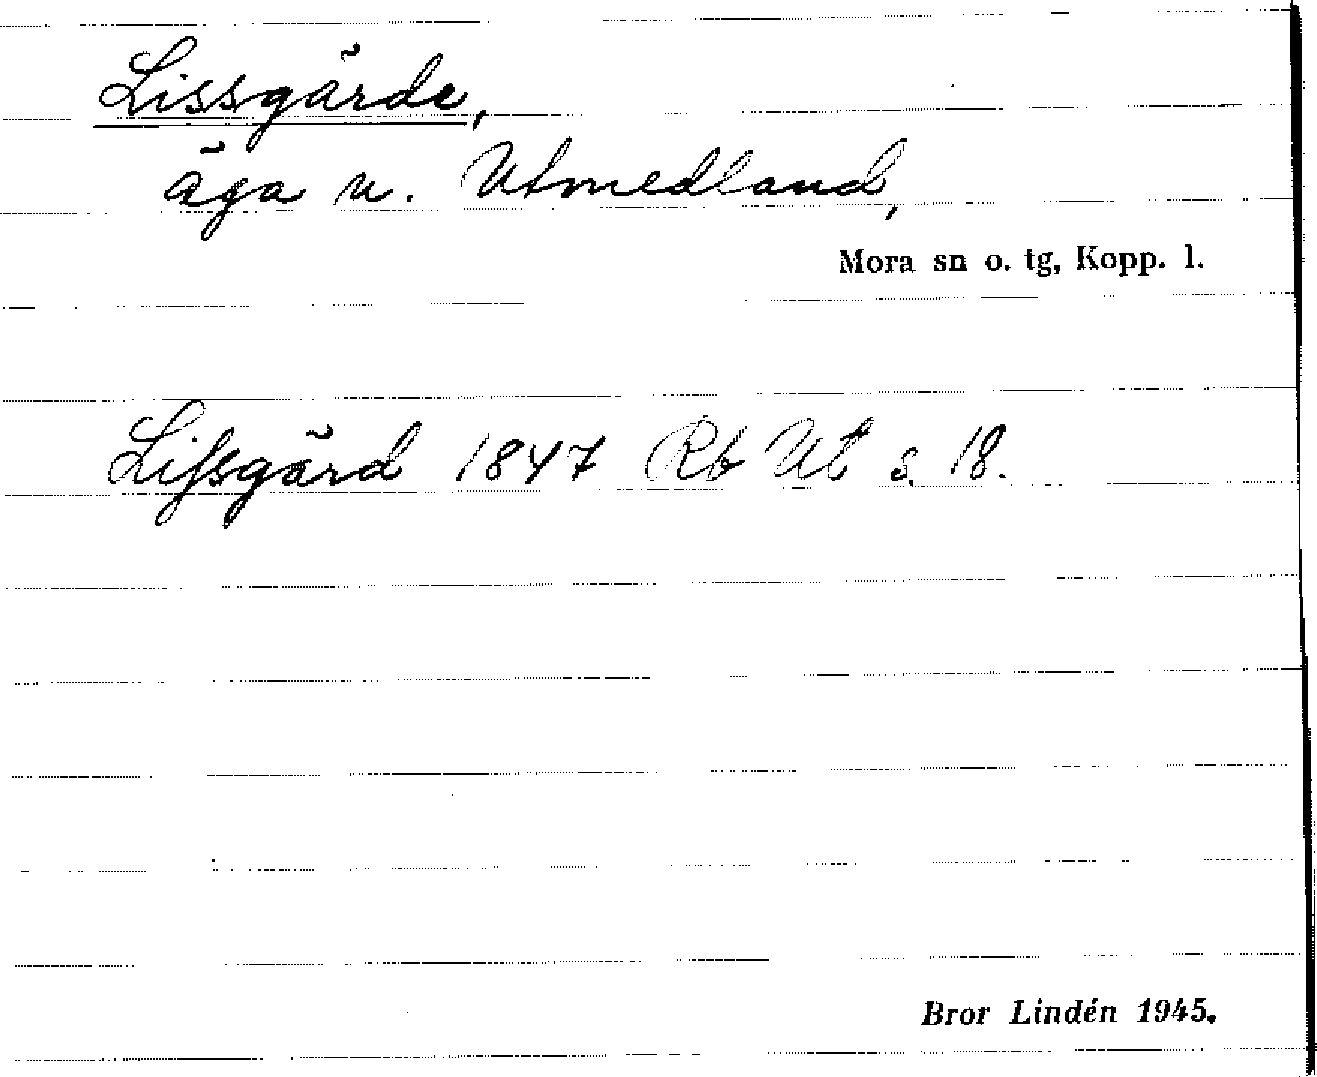 Lissgärde,
äga u. Utmedland,
Mora sn o. tg, Kopp. l.
Lifsgärd 1847 Rb Ut s. 18.
Bror Lindén 1945.